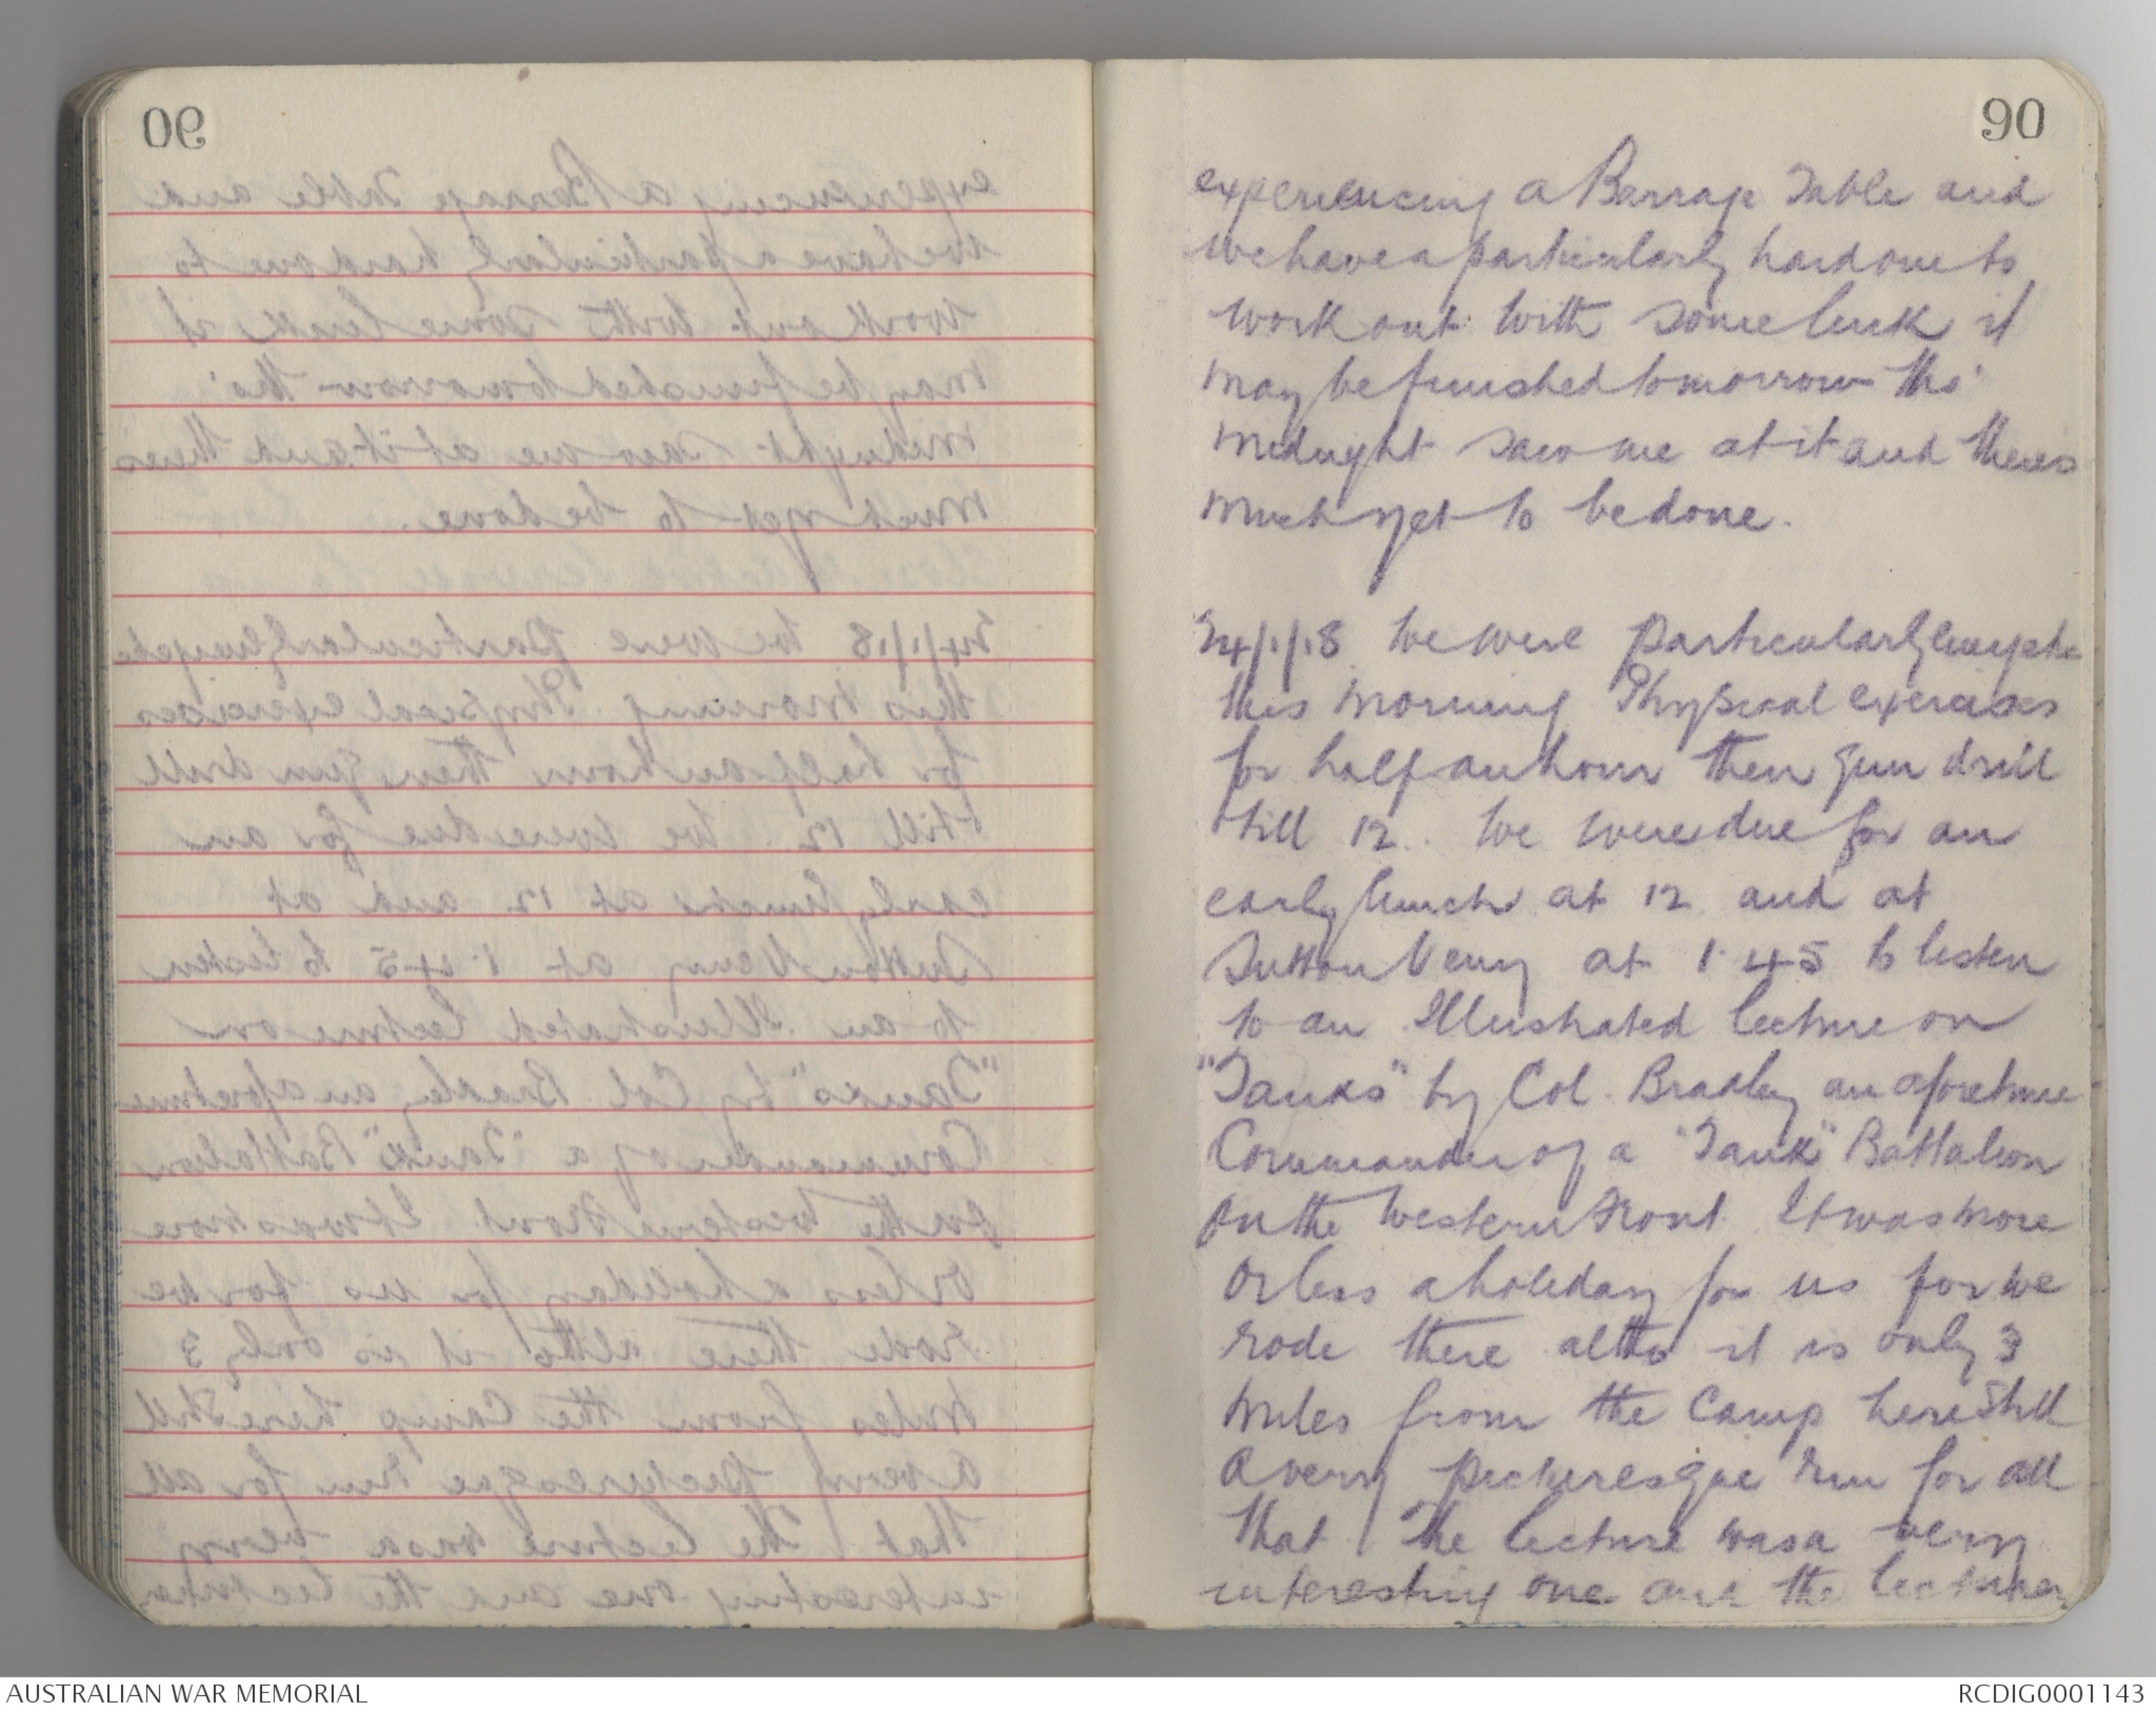 90
experiencing a Barrage Table and
we have a particularly hard one to
work out. With some luck it
may be finished tomorrow tho'
midnight saw me at it and theres
much yet to be done.
24/1/18. We were particularly
this morning Physical exercises
for half an hour then gun drill
till 12. We were due for an
early lunch at 12 and at
Sutton Veny at 1.45 to listen
to an Illustrated lecture on
"Tanks" by Col. Bradley an aforetime
Commander of a "Tank" Battalion
on the Western Front. It was more
or less a holiday for us for we
rode there altho it is only 3
miles from the Camp here Still
a very picturesque run for all
that. The lecture was a very
interesting one and the lecturer
AUSTRALIAN WAR MEMORIAL
RCDIG0001143